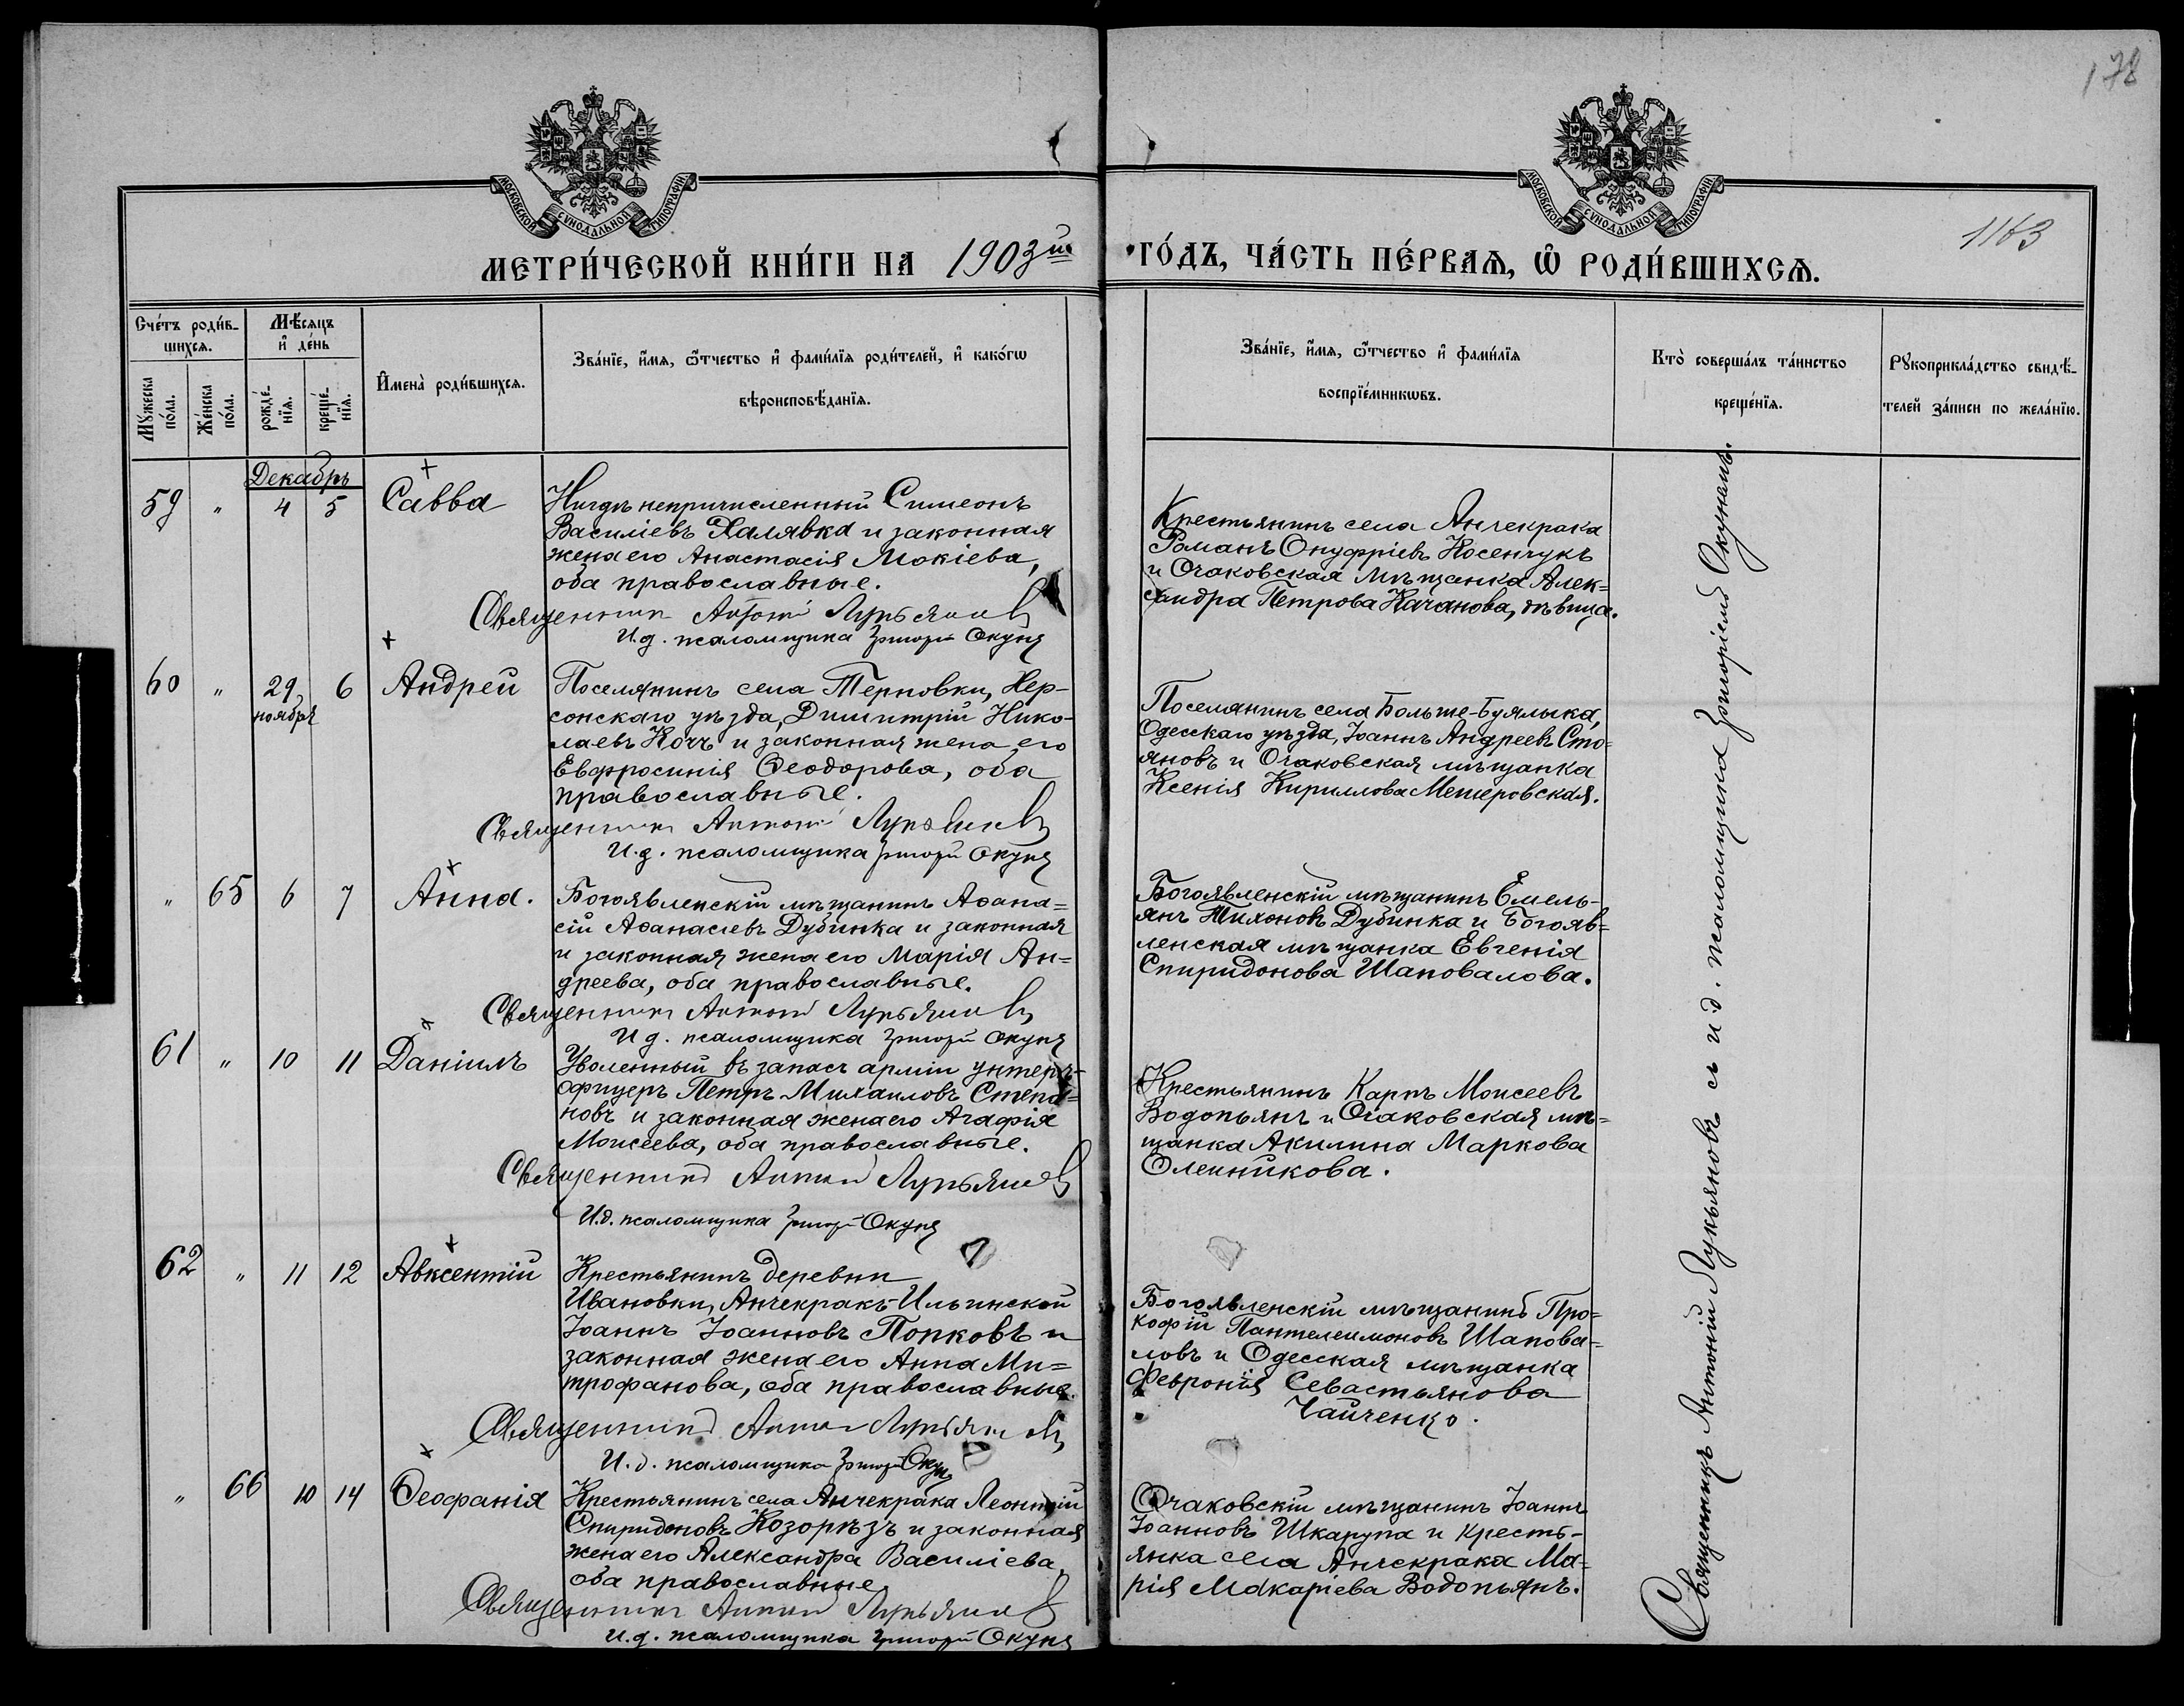 178
1163
МОСКОВСКОЙ СѴНОДАЛЬНОЙ ТИПОГРАФІИ
МОСКОВСКОЙ СѴНОДАЛЬНОЙ ТИПОГРАФІИ
МЕТРИ́ЧЕСКОЙ КНИ́ГИ НА 1903й
ГО́ДЪ, ЧА́СТЬ ПЕ́РВАѦ, Ѽ РОДИ́ВШИХСѦ.
Сче́тъ роди́в-
шихсѧ.
Мꙋ́жеска
по́ла.
Же́нска
по́ла.
Мѣ́сѧцъ
и҆ де́нь
рожде́-
нїѧ.
креще́-
нїѧ.
И҆мена̀ роди́вшихсѧ.
Зва́нїе, и҆́мѧ, ѻ҆́тчество и҆ фами́лїѧ роди́телей, и҆ како́гѡ
вѣроисповѣ́данїѧ.
Зва́нїе, и҆́мѧ, ѻ҆́тчество и҆ фами́лїѧ
воспрїе́мникѡвъ.
Кто̀ соверша́лъ та́инство
креще́нїѧ.
Рꙋкоприкла́дство свидѣ́-
телей за́писи по жела́нїю.
Декабрь
59 " 4 5 Савва
Нигдѣ непричисленный Симеонъ
Василіевъ Халявка и законная
жена его Анастасія Мокіева,
оба православные.
Священникъ Антоній Лукьяновъ
И.д. псаломщика Григорій Окунь
Крестьянинъ села Анчекрака
Романъ Онуфріевъ Косенчукъ
и Очаковская мѣщанка Алек=
сандра Петрова Качанова, дѣвица.
60 " 29 ноября 6 Андрей
Поселянинъ села Терновки, Хер-
сонскаго уѣзда, Димитрій Нико-
лаевъ Кочъ и законная жена его
Евфросинія Ѳеодорова, оба
православные.
Священникъ Антоній Лукьяновъ
И.д. псаломщика Григорій Окунь
Поселянинъ села Больше-Буялыка,
Одесскаго уѣзда, Іоаннъ Андреевъ Сто=
яновъ и Очаковская мѣщанка
Ксенія Кириллова Мещеровская.
" 65 6 7 Анна.
Богоявленскій мѣщанинъ Аѳана=
сій Аѳанасіевъ Дубинка и законная
и законная жена его Марія Ан=
дреева, оба православные.
Священникъ Антоній Лукьяновъ
И д. псаломщика Григорій Окунь
Богоявленскій мѣщанинъ Емель-
янъ Тихоновъ Дубинка и Богояв=
ленская мѣщанка Евгенія
Спиридонова Шаповалова.
61 " 10 11 Даніилъ
Уволенный въ запасъ арміи унтеръ-
офицеръ Петръ Михаиловъ Степа=
новъ и законная жена его Агафія
Моисеева, оба православные.
Священникъ Антоній Лукьяновъ
И.д. псаломщика Григорій Окунь
Крестьянинъ Карпъ Моисеевъ
Водопьянъ и Очаковская мѣ=
щанка Акилина Маркова
Олейникова.
62 " 11 12 Авксентій
Крестьянинъ деревни
Ивановки, Анчекракъ-Ильинской
Іоаннъ Іоанновъ Попковъ и
законная жена его Анна Ми=
трофанова, оба православные.
Священникъ Антоній Лукьяновъ
И.д. псаломщика Григорій Окунь
Богоявленскій мѣщанинъ Про=
кофій Пантелеимоновъ Шапова=
ловъ и Одесская мѣщанка
Февронія Севастьянова
Чайченко.
" 66 10 14 Ѳеофанія
Крестьянинъ села Анчекрака Леонтій
Спиридоновъ Козорѣзъ и законная
жена его Александра Василіева,
оба православные
Священникъ Антоній Лукьяновъ
и.д. псаломщика Григорій Окунь
Очаковскій мѣщанинъ Іоаннъ
Іоанновъ Шкарупа и кресть-
янка села Анчекрака Ма-
рія Макаріева Водопьянъ.
Священникъ Антоній Лукьяновъ съ и.д. псаломщика Григоріемъ Окунемъ.